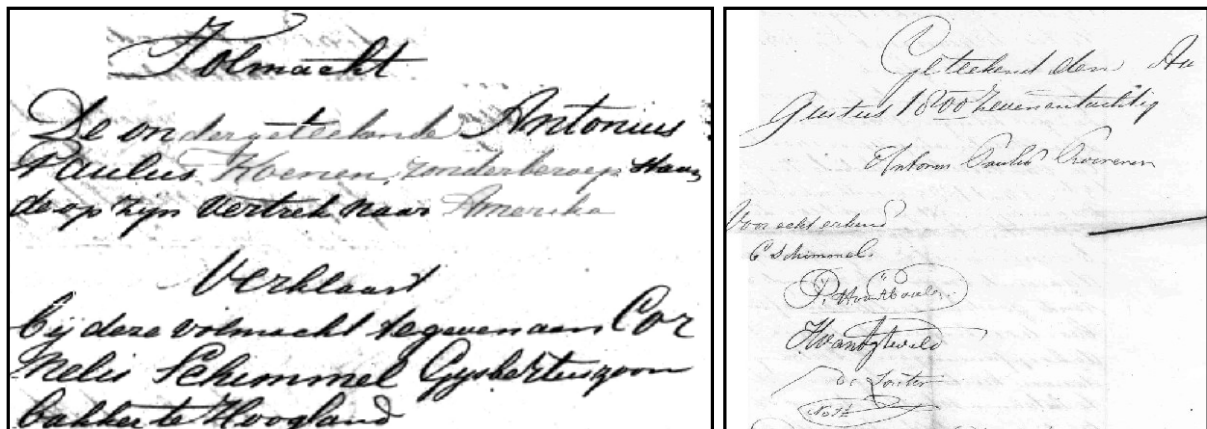 Volmacht
De ondergeteekende Antonius
Paulus Koenen, zonder beroep staan
de op zijn vertrek naar Amerika
Verklaart
bij deze volmacht te geven aan Cor
nelis Schimmel Gysbertuszoon
bakker te Hoogland
Geteekend den Au
gustus 1800 zevenentachtig
Antonus Paulus
Voor echt erkend
C Schimmel.